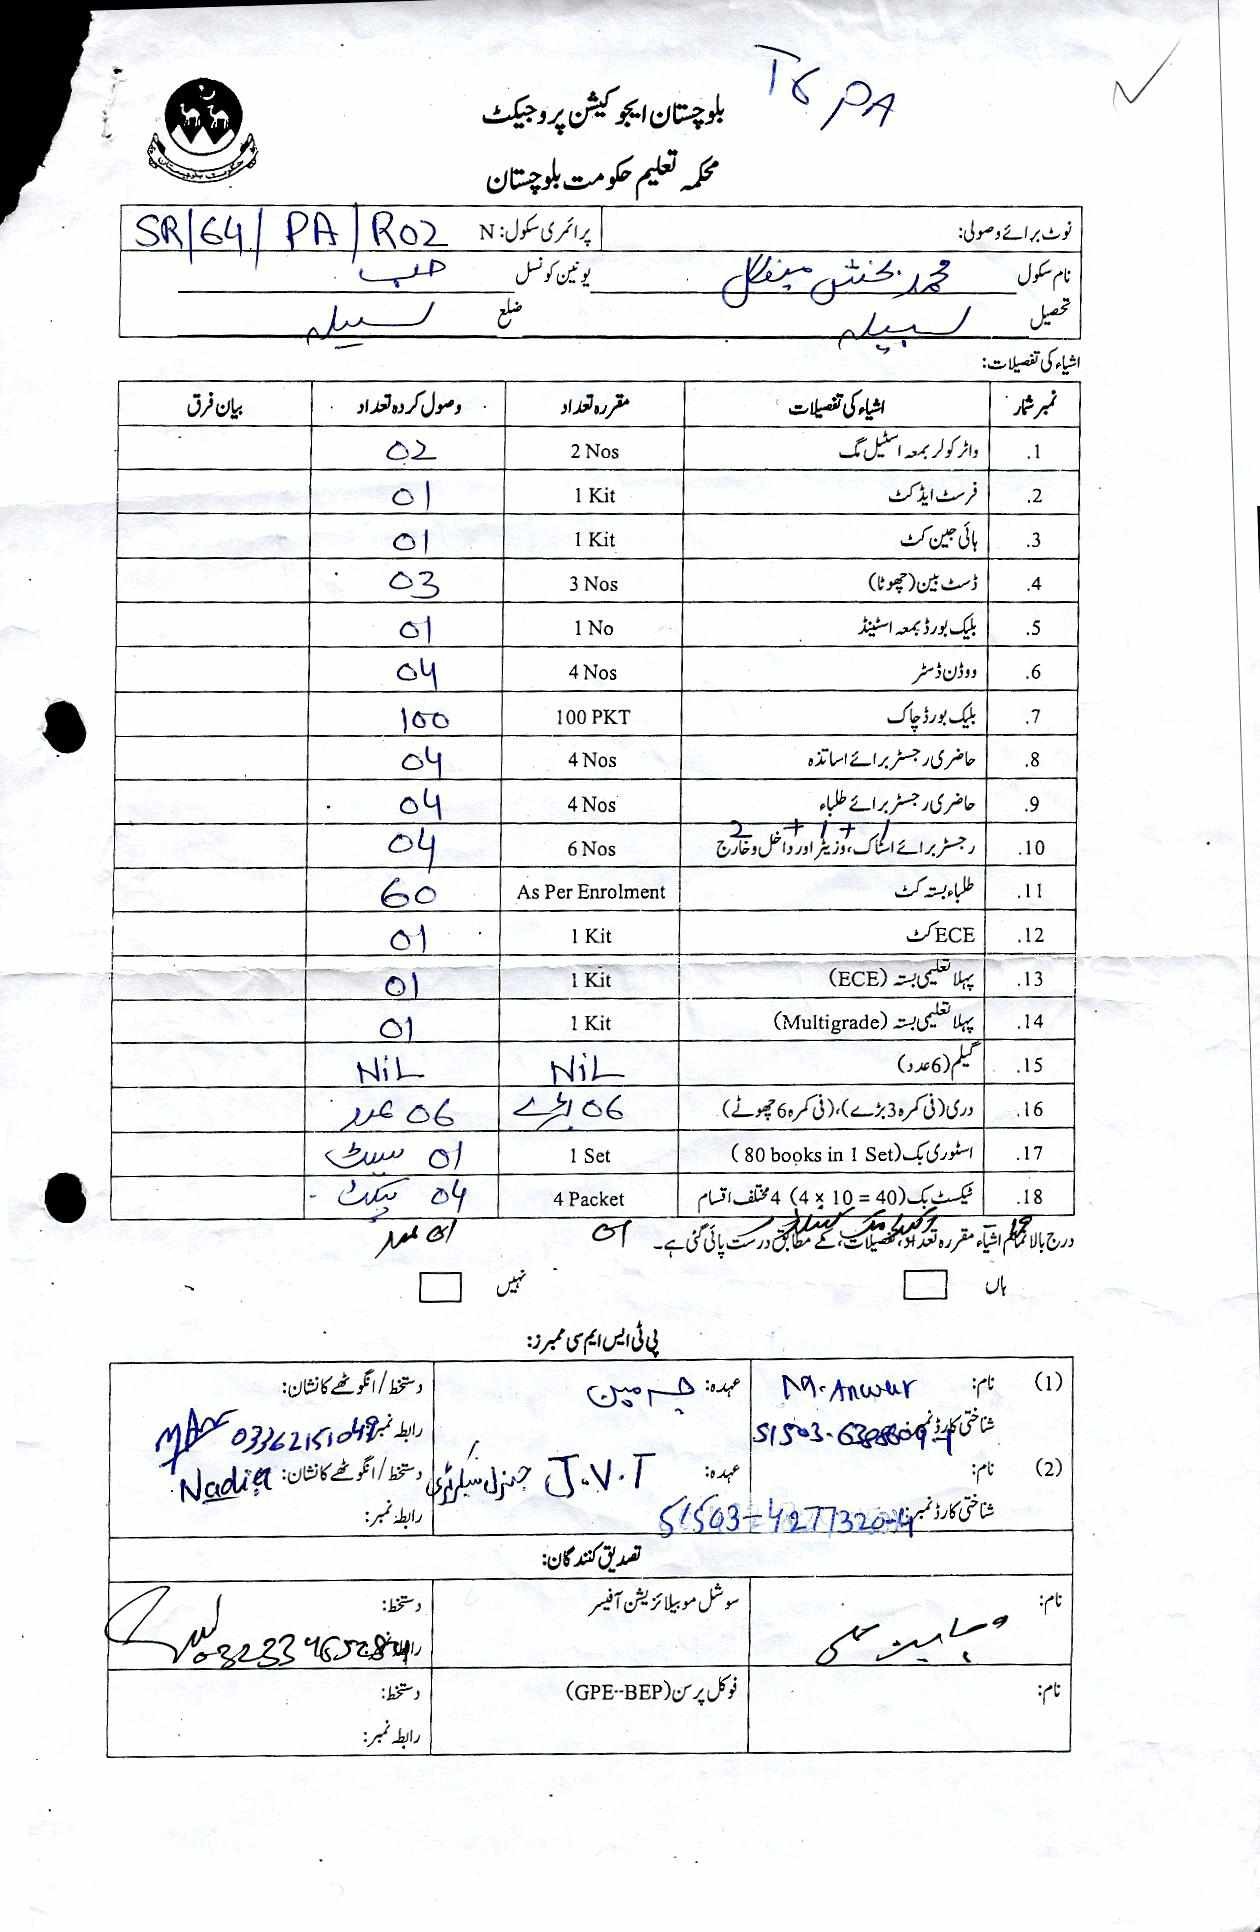 T8 PA
بلوچستان ایجوکیشن پروجیکٹ
محکمہ تعلیم حکومت بلوچستان
حکومت بلوچستان
نوٹ برائے وصولی: پرائمری سکول: N SR/64/PA/R02
نام سکول محمد بخش مینگل یونین کونسل حب
تحصیل لسبیلہ ضلع لسبیلہ
اشیاء کی تفصیلات:
نمبر شمار اشیاء کی تفصیلات مقررہ تعداد وصول کردہ تعداد بیان فرق
1. واٹر کولر بمعہ اسٹیل مگ 2 Nos 02
2. فرسٹ ایڈ کٹ 1 Kit 01
3. ہائی جین کٹ 1 Kit 01
4. ڈسٹ بین (چھوٹا) 3 Nos 03
5. بلیک بورڈ بمعہ اسٹینڈ 1 No 01
6. ووڈن ڈسٹر 4 Nos 04
7. بلیک بورڈ چاک 100 PKT 100
8. حاضری رجسٹر برائے اساتذہ 4 Nos 04
9. حاضری رجسٹر برائے طلباء 4 Nos 04
1 + 1 + 2
10. رجسٹر برائے اسٹاک، وزیٹر اور داخل و خارج 6 Nos 04
11. طلباء بستہ کٹ As Per Enrolment 60
12. ECE کٹ 1 Kit 01
13. پہلا تعلیمی بستہ (ECE) 1 Kit 01
14. پہلا تعلیمی بستہ (Multigrade) 1 Kit 01
15. گیلم (6 عدد) NiL NiL
16. دری (فی کمرہ 3 بڑے)، (فی کمرہ 6 چھوٹے) 06 بڑے 06 عدد
17. اسٹوری بک (80 books in 1 Set) 1 Set 01 سیٹ
18. ٹیکسٹ بک (4 x 10 = 40) 4 مختلف اقسام 4 Packet 04 پیکٹ
01 01 عدد
درج بالا تمام اشیاء مقررہ تعداد، تفصیلات، کے مطابق درست پائی گئی ہے۔
ہاں نہیں
پی ٹی ایس ایم سی ممبرز:
(1) نام: M. Anwar عہدہ: چیرمین دستخط / انگوٹھے کا نشان:
شناختی کارڈ نمبر: رابطہ نمبر: 03362151049
(2) نام: عہدہ: J.V.T جنرل سیکرٹری دستخط / انگوٹھے کا نشان: Nadia
شناختی کارڈ نمبر: 51503-4277320-4 رابطہ نمبر:
تصدیق کنندگان:
نام: سوشل موبیلائزیشن آفیسر دستخط:
رابطہ نمبر:
نام: فوکل پرسن (GPE--BEP) دستخط:
رابطہ نمبر: